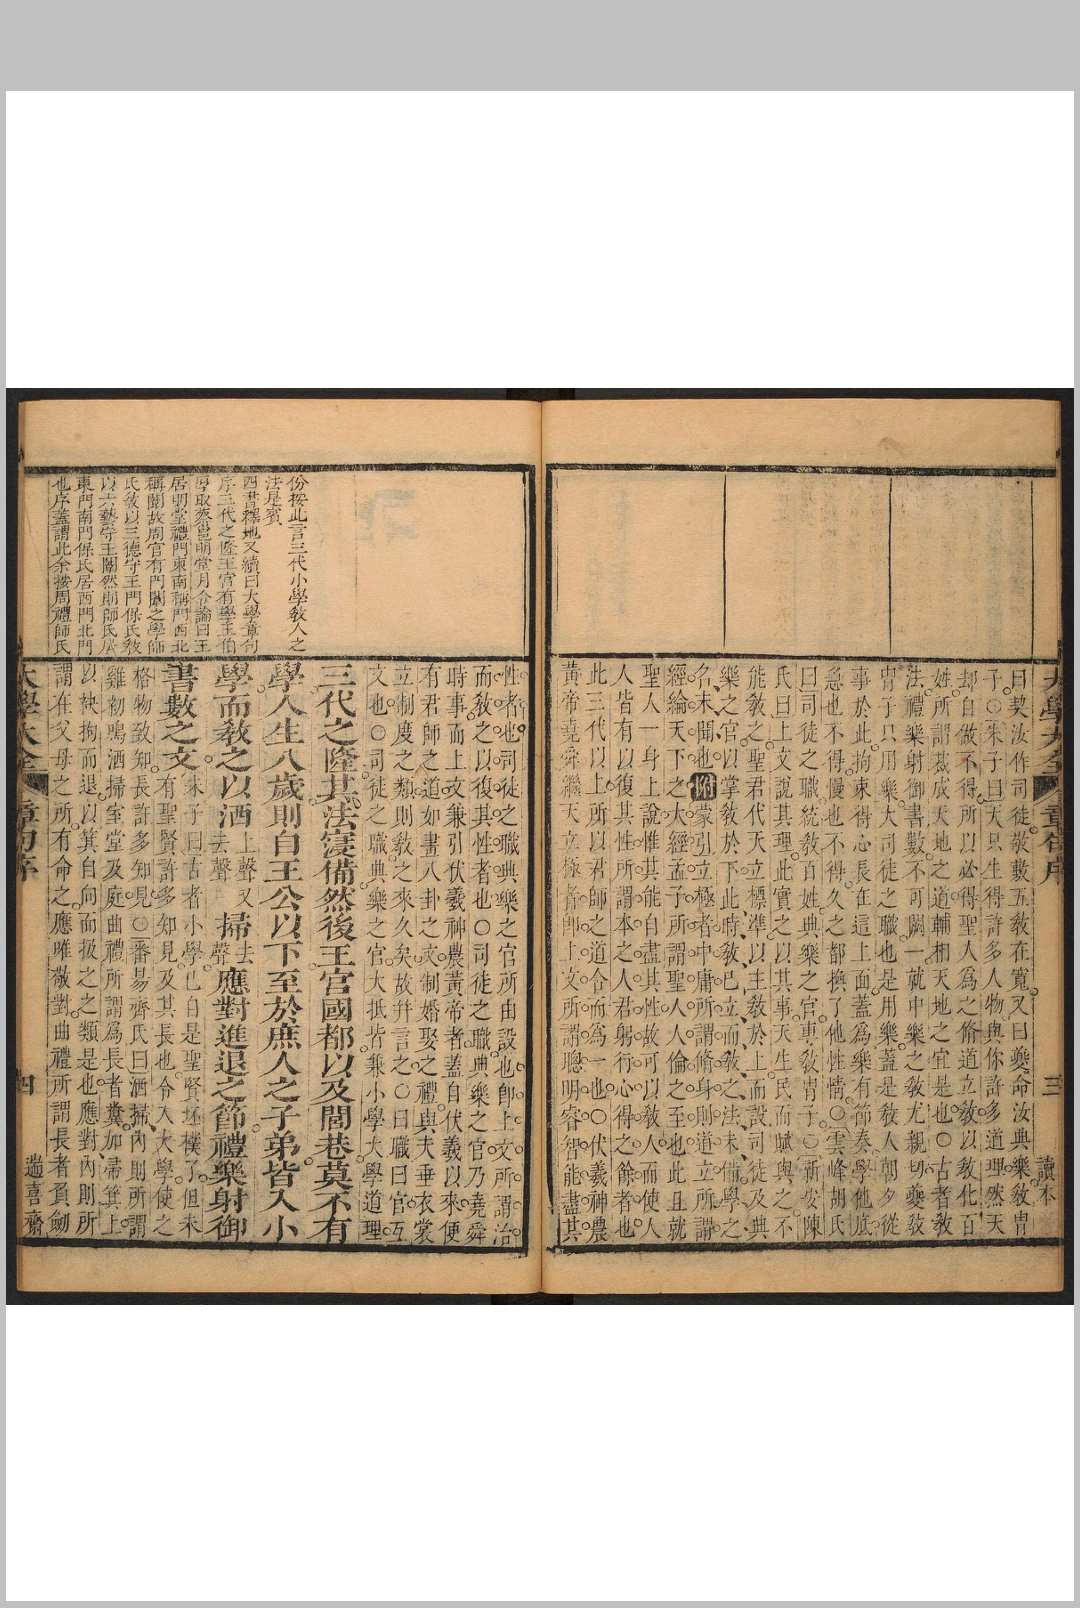 大學大全
章句序
三
讀本
曰契汝作司徒敬敷五敎在寬又曰夔命汝典樂敎冑
子○朱子曰天只生得許多人物與你許多道理然天
却自做不得所以必得聖人爲之脩道立敎以敎化百
姓所謂裁成天地之道輔相天地之宜是也○古者敎
法禮樂射御書數不可闕一就中樂之敎尤親切夔敎
冑子只用樂大司徒之職也是用樂蓋是敎人朝夕從
事於此拘束得心長在這上面蓋爲樂有節奏學他底
急也不得慢也不得久之都換了他性情○雲峰胡氏
曰司徒之職統敎百姓典樂之官專敎冑子○新安陳
氏曰上文說其理此實之以其事天生民而賦與之不
能敎之聖君代天立標準以主敎於上而設司徒及典
樂之官以掌敎於下此時敎已立而敎之法未備學之
名未聞也附蒙引立極者中庸所謂脩身則道立所謂
經綸天下之大經孟子所謂聖人人倫之至也此且就
聖人一身上說惟其能自盡其性故可以敎人而使人
人皆有以復其性所謂本之人君躬行心得之餘者也
此三代以上所以君師之道合而爲一也○伏羲神農
黃帝堯舜繼天立極者卽上文所謂聰明睿智能盡其
性者也司徒之職典樂之官所由設也卽上文所謂治
而敎之以復其性者也○司徒之職典樂之官乃堯舜
時事而上文兼引伏羲神農黃帝者蓋自伏羲以來便
有君師之道如畫八卦之文制婚娶之禮與夫垂衣裳
立制度之類則敎之來久矣故幷言之○曰職曰官互
文也○司徒之職典樂之官大抵皆兼小學大學道理
三代之隆其法寖備然後王宮國都以及閭巷莫不有
學人生八歲則自王公以下至於庶人之子弟皆入小
學而敎之以洒上聲又去聲掃去聲應對進退之節禮樂射御
書數之文朱子曰古者小學已自是聖賢坯樸了但未
有聖賢許多知見及其長也令入大學使之
格物致知長許多知見○番易齊氏曰洒掃內則所謂
雞初鳴洒掃室堂及庭曲禮所謂爲長者糞加帚箕上
以袂拘而退以箕自向而扱之之類是也應對內則所
謂在父母之所有命之應唯敬對曲禮所謂長者負劒
份按此言三代小學敎人之
法是實
四書釋地又續曰大學章句
序三代之隆王宮有學王伯
厚取蔡邕明堂月令論曰王
居明堂禮門東南稱門西北
稱闈故周官有門闈之學師
氏敎以三德守王門保氏敎
以六藝守王闈然則師氏居
東門南門保氏居西門北門
也序蓋謂此余按周禮師氏
大學大全
章句序
四
遄喜齋